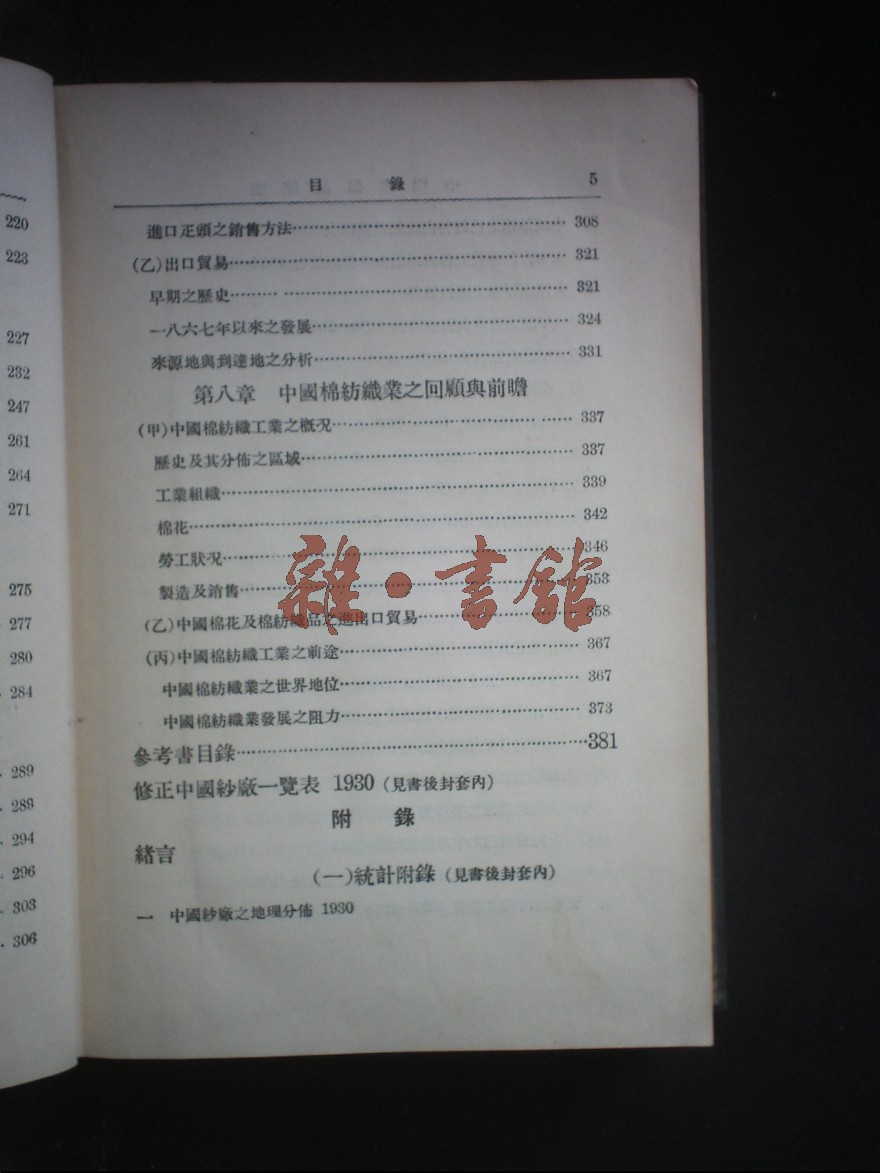 220
223
227
232
247
261
264
271
275
277
280
284
289
289
294
296
303
306
目錄 5
進口疋頭之銷售方法 308
(乙)出口貿易 321
早期之歷史 321
一八六七年以來之發展 324
來源地與到達地之分析 331
第八章 中國棉紡織業之回顧與前瞻
(甲)中國棉紡織工業之概況 337
歷史及其分佈之區域 337
工業組織 339
棉花 342
勞工狀況 346
製造及銷售 353
(乙)中國棉花及棉紡織品之進出口貿易 358
(丙)中國棉紡織工業之前途 367
中國棉紡織業之世界地位 367
中國棉紡織業發展之阻力 373
參考書目錄 381
修正中國紗廠一覽表 1930 (見書後封套內)
附錄
緒言
(一)統計附錄 (見書後封套內)
一 中國紗廠之地理分佈 1930
雜·書館